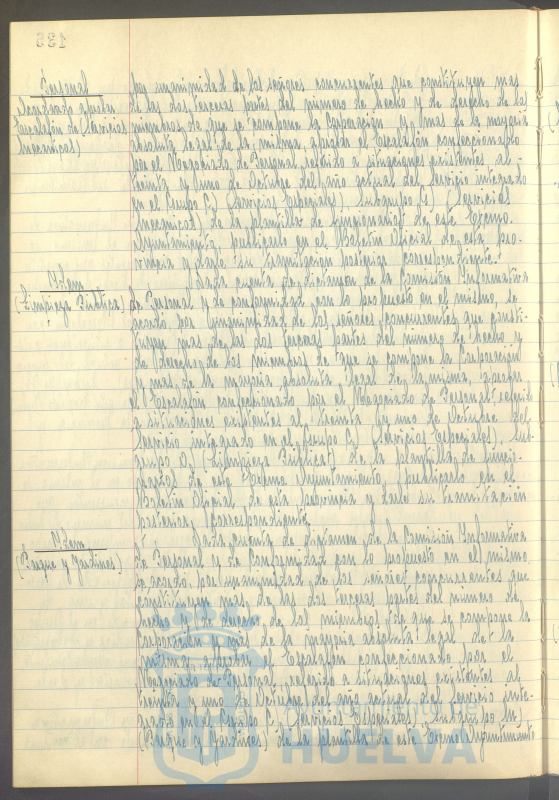 135
Personal
Acordando aprobar
Escalafón de Servicios
Mecánicos)
por unanimidad de los señores concurrentes que constituyen mas
de las dos terceras partes del número de hecho y de derecho de los
miembros de que se compone la Corporación y mas de la mayoria
absoluta legal de la misma, aprobar el Escalafón confeccionado
por el Negociado de Personal referido a situaciones existentes al
treinta y uno de Octubre del año actual del Servicio integrado
en el Grupo C) (Servicios Especiales), Subgrupo C) (Servicios
Mecánicos) de la plantilla de funcionarios de este Excmo.
Ayuntamiento, publicarlo en el Boletín Oficial de esta pro-
vincia y darle su tramitación posterior correspondiente.
Idem
(Limpieza Pública)
Dada cuenta de dictamen de la Comisión Informativa
de Personal y de conformidad con lo propuesto en el mismo, se
acordó por unanimidad de los señores concurrentes que consti-
tuyen mas de las dos terceras partes del número de hecho y
de derecho de los miembros de que se compone la Corporación
y mas de la mayoria absoluta legal de la misma, aprobar
el Escalafón confeccionado por el Negociado de Personal referido
a situaciones existentes al treinta y uno de Octubre del
Servicio integrado en el Grupo C) (Servicios Especiales), Sub-
grupo D) (Limpieza Pública) de la plantilla de funcio-
narios de este Excmo Ayuntamiento, publicarlo en el
Boletín Oficial de esta provincia y darle su tramitación
posterior correspondiente.
Idem
(Parque y Jardines)
Dada cuenta de dictamen de la Comisión Informativa
de Personal y de Conformidad con lo propuesto en el mismo
se acordó por unanimidad de los señores concurrentes que
constituyen mas de las dos terceras partes del número de
hecho y de derecho de los miembros de que se compone la
Corporación y mas de la mayoria absoluta legal de la
misma, aprobar el Escalafón confeccionado por el
Negociado de Personal, referido a situaciones existentes al
treinta y uno de Octubre del año actual del servicio inte-
grado en el Grupo C) (Servicios Especiales), Subgrupo
(Parque y Jardines) de la plantilla de este Excmo Ayuntamiento
HUELVA